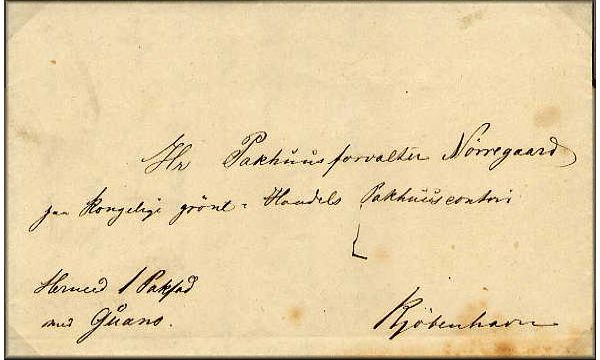 Hr Pakhuusforvalter Nörregaard
paa kongelige grönl: Handels Pakhuuscontoir
Hermed 1 Pakfad
med Guano.
Kjöbenhavn